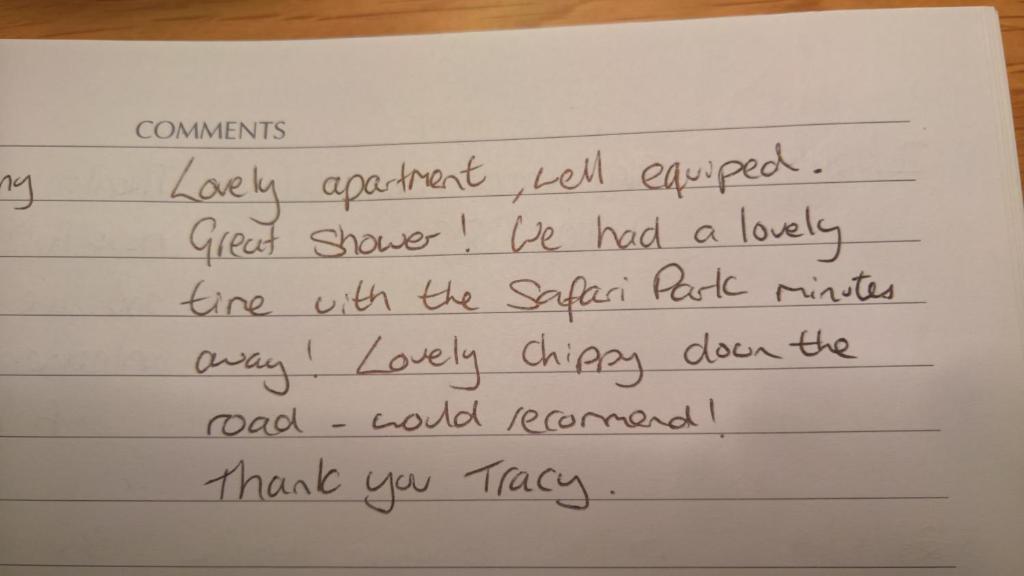 COMMENTS
ng
Lovely apartment, well equiped.
Great shower! We had a lovely
time with the Safari Park minutes
away! Lovely chippy down the
road - would recommend!
Thank you Tracy.